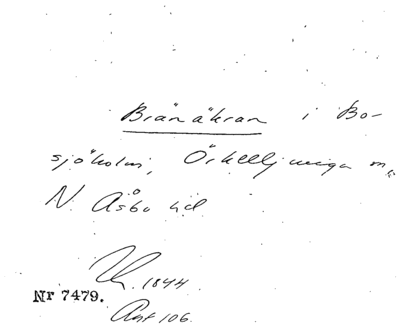 Bränåkran i Bo-
sjöholm, Örkelljunga sn,
N Åsbo hd
1844
Nr 7479.
Akt 106.